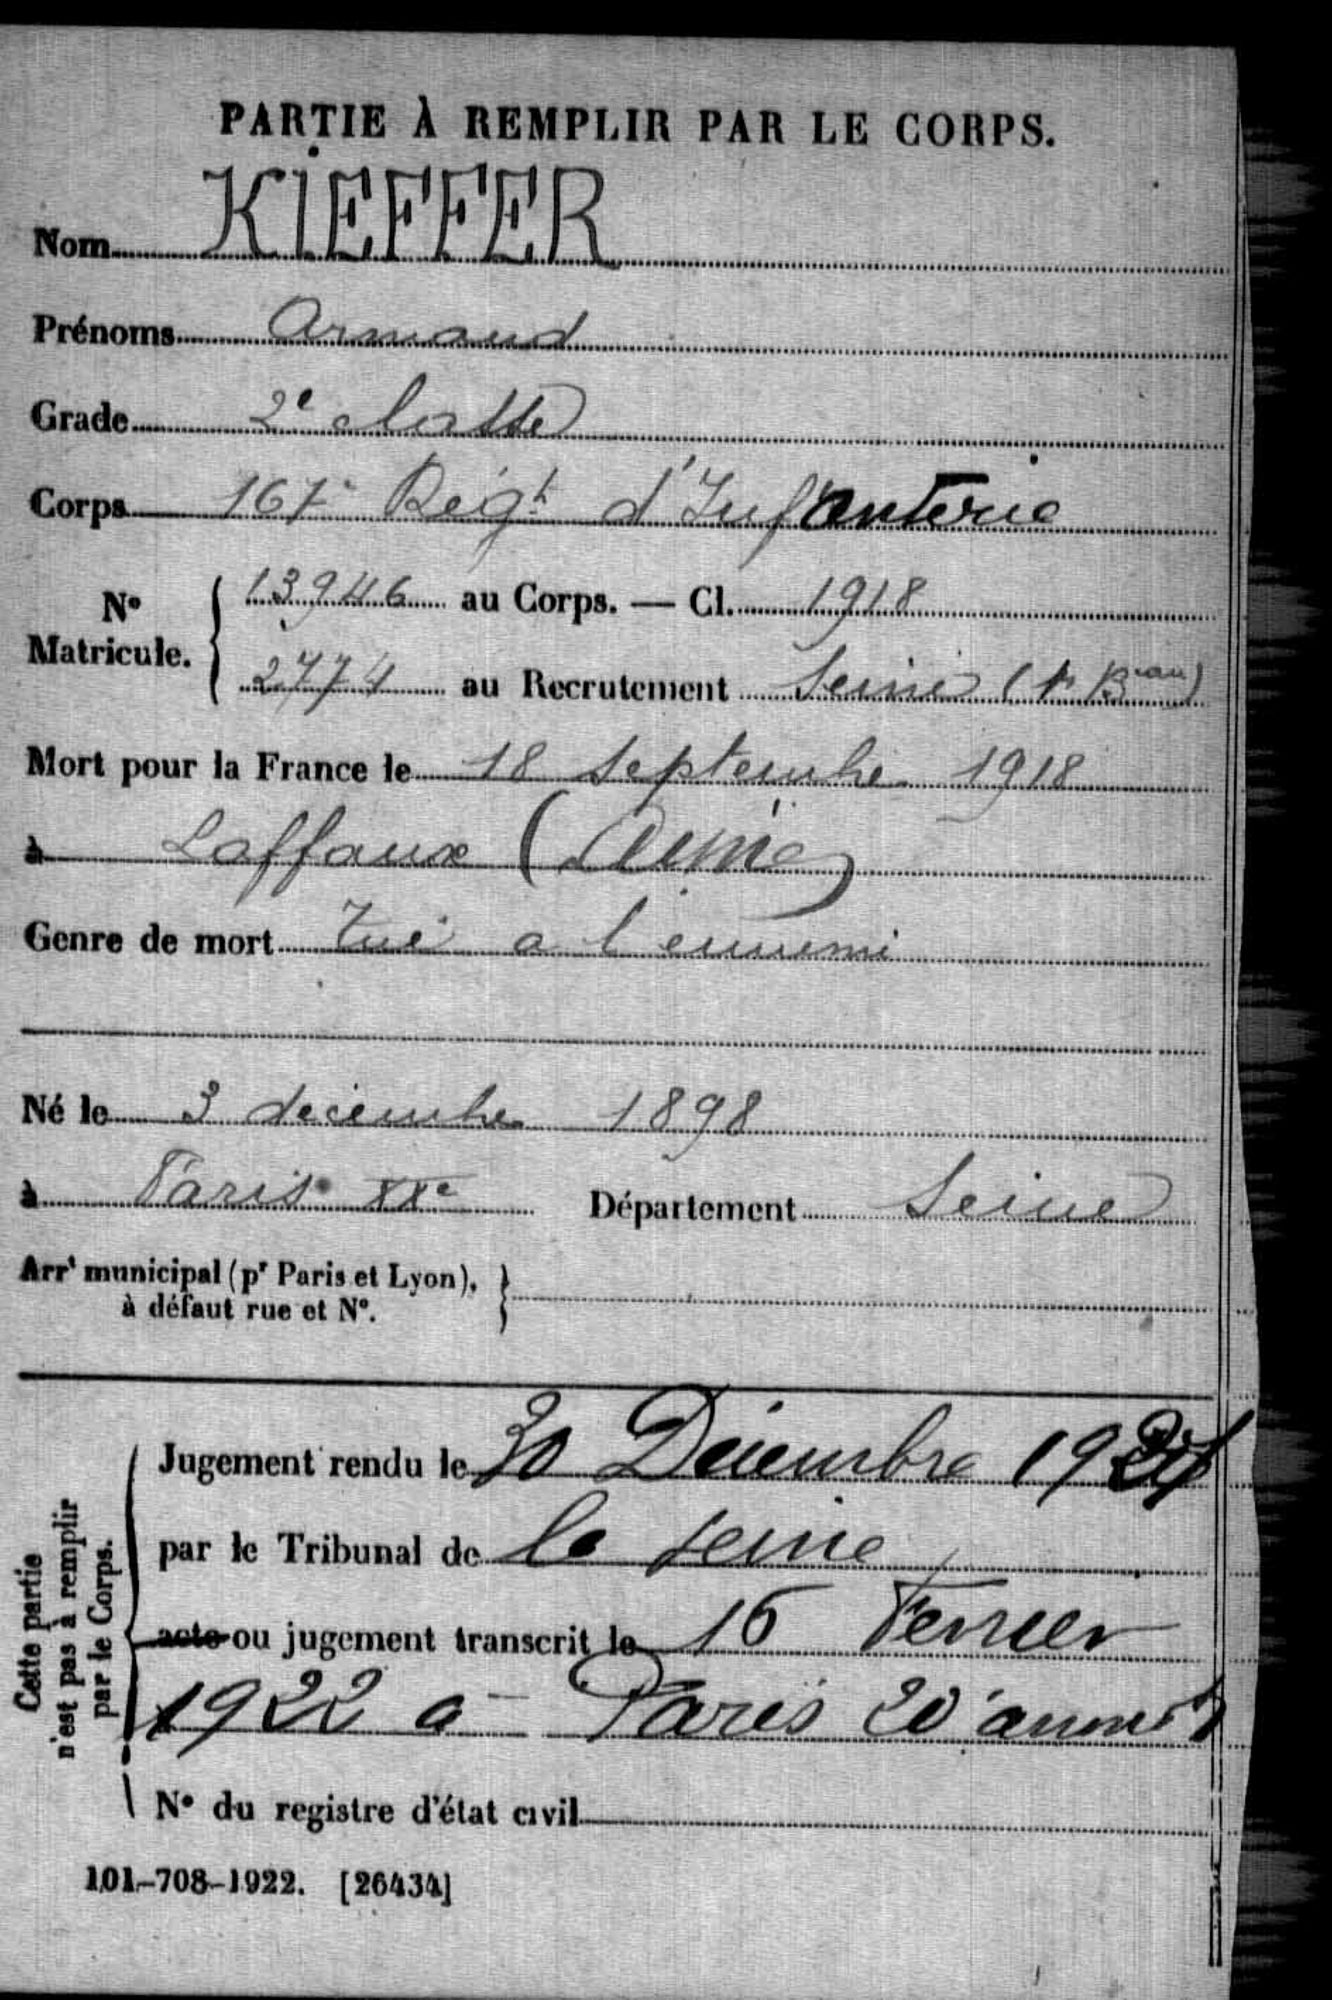 PARTIE À REMPLIR PAR LE CORPS.
Nom KIEFFER
Prénoms Armand
Grade 2e classe
Corps 167e Régt d'Infanterie
No Matricule. { 13946 au Corps. — Cl. 1918
2774 au Recrutement Seine (1r Bau)
Mort pour la France le 18 septembre 1918
à Laffaux (Aisne)
Genre de mort Tué a l'ennemi
Né le 3 decembre 1898
à Paris XXe Département Seine
Arrt municipal (pr Paris et Lyon),
à défaut rue et No. }
Cette partie
n'est pas à remplir
par le Corps.
Jugement rendu le 30 Décembre
par le Tribunal de la Seine
acte ou jugement transcrit le 16 Fevrier
1922 a Paris 20e
No du registre d'état civil
101-708-1922. [26434]